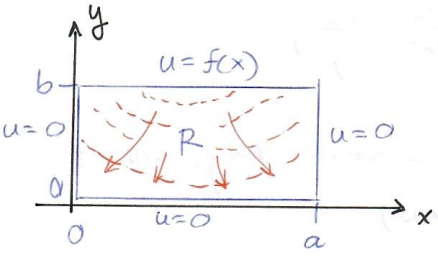 y
u = f(x)
b
u = 0
R
u = 0
0
u = 0
x
0
a